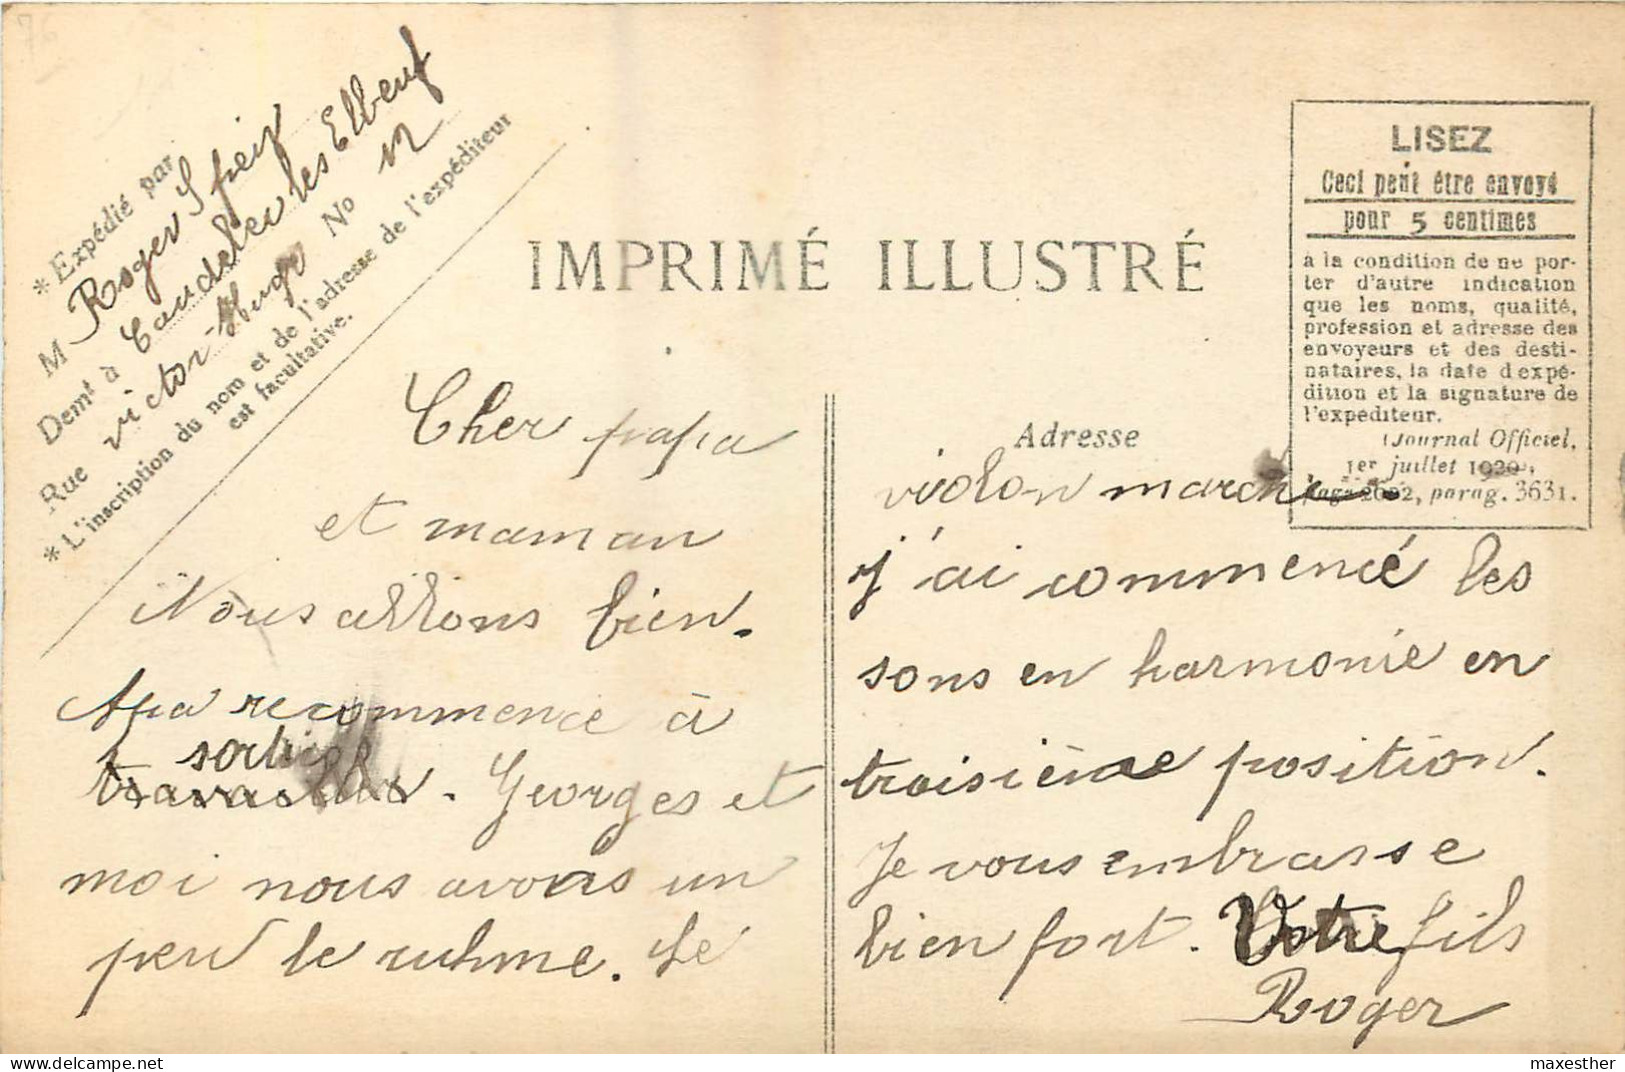 76
* Expédié par
M Roger Speix
Demt à Caudebec les Elbeuf
Rue victor-Hugo No 12
* L'inscription du nom et de l'adresse de l'expéditeur
est facultative.
IMPRIMÉ ILLUSTRÉ
LISEZ
Ceci peut être envoyé
pour 5 centimes
à la condition de ne por-
ter d'autre indication
que les noms, qualité,
profession et adresse des
envoyeurs et des desti-
nataires, la date d'expé-
dition et la signature de
l'expéditeur.
(Journal Officiel,
1er juillet 1920,
page 2002, parag. 3631.
Cher papa
et maman
Nous allons bien.
recommence à
sortir
travailler. Georges et
moi nous avons un
peu le ruhme. Le
Adresse
violon marche.
j'ai commencé les
sons en harmonie en
troisième position.
Je vous embrasse
bien fort. Votre fils
Roger
maxesther